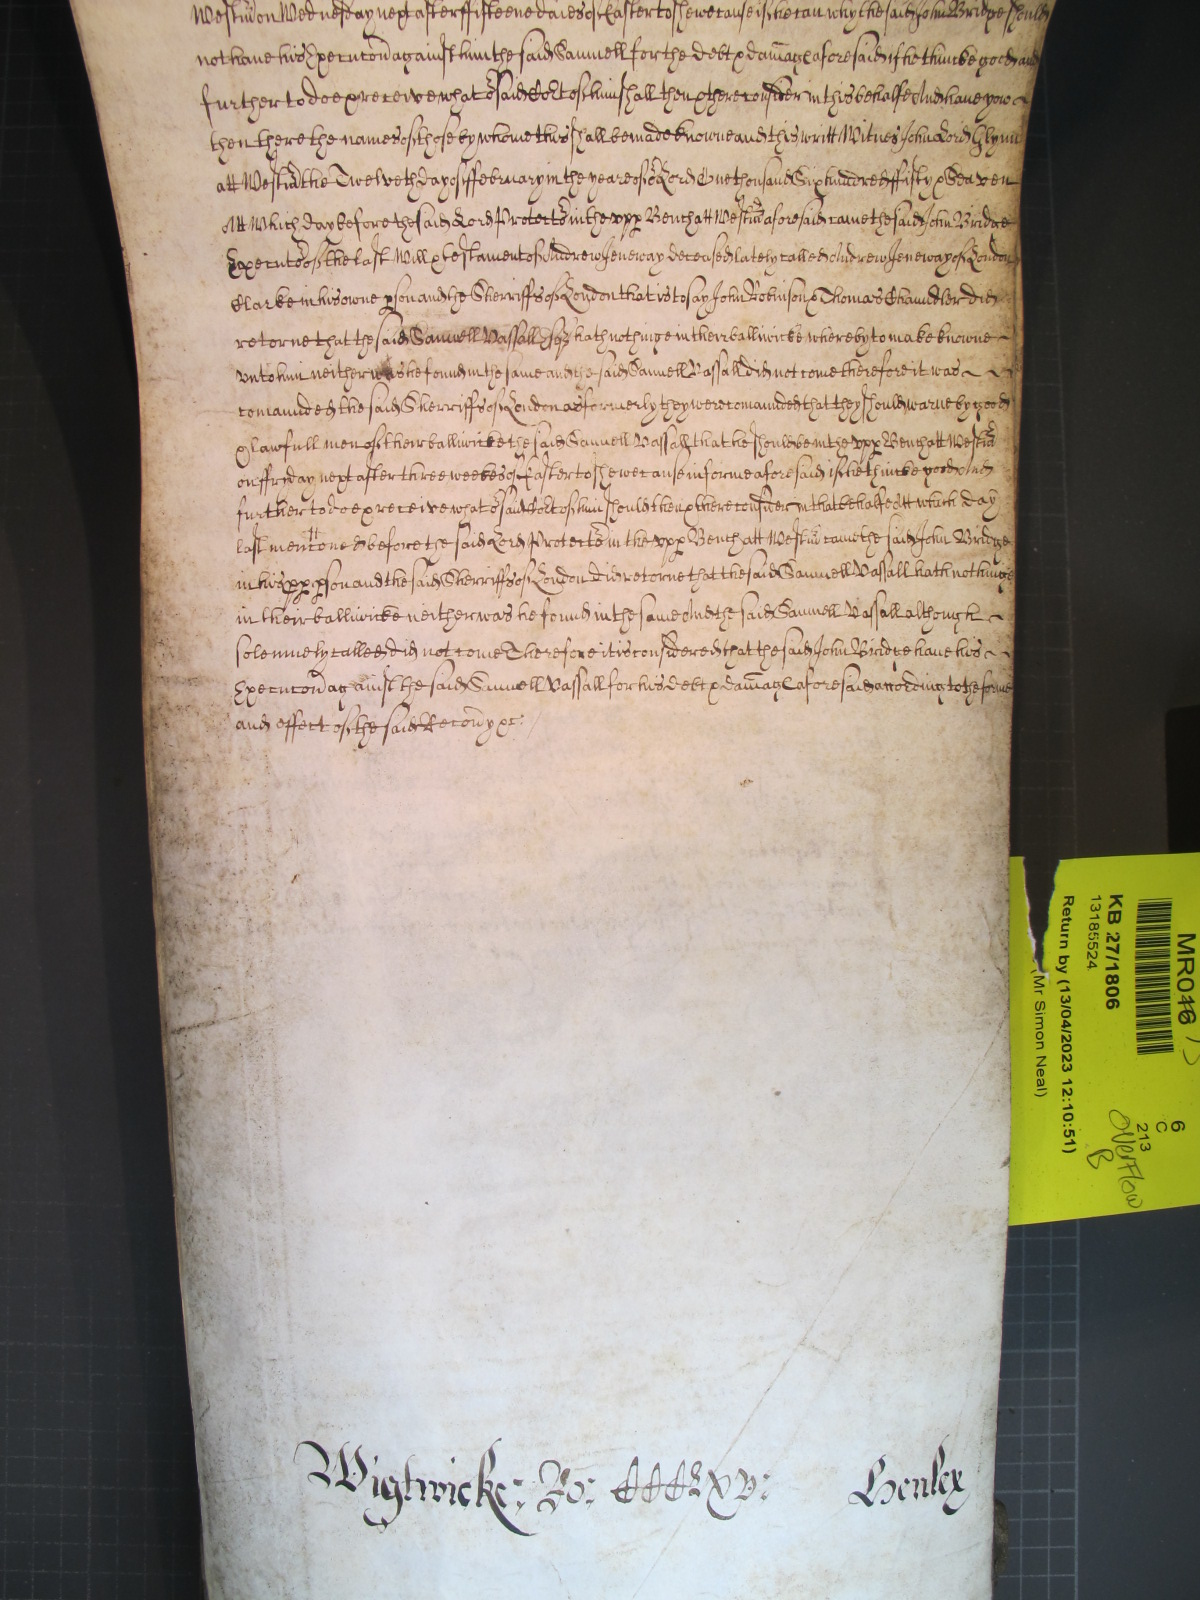 Westm̄ on Wednesday next after ffifteene daies of Easter to shewe cause if he can why the said John Bridge should
not have his Execucōn against him the said Samuell for the debt & damag̃ aforesaid if he thincke good and
further to doe & receive what oʳ said Coʳt of him shall then & there consider in this behalfe And have you
then there the names of those by whome this shall be made knowne and this writt Witnes John Lord Glynn
att Westm̄ the Twelveth day of ffebruary in the yeare of oʳ Lord One thousand Six hundred ffifty & Seaven
Att Which day before the said Lord Protectoʳ in the vpp̱ Bench att Westm̄ aforesaid came the said John Bridge
Executoʳ of the last Will & testament of Andrew Jeneway deceased lately called Andrew Jeneway of London
Clarke in his owne ꝑson and the Sherriffs of London that is to say John Robinson & Thomas Chamdler did
retorne that the said Samuell Vassall Esqʳ hath nothinge in their balliwicke whereby to make knowne
vnto him neither was he found in the same and the said Samuell Vassall did not come therefore it was
comaunded the said Sherriffs of London as formerly they were comaunded that they should warne by good
& lawfull men of their balliwicke the said Samuell Vassall that he should be in the vpp̱ Bench att Westm̄
on ffriday next after three weekes of Easter to shewe cause in forme aforesaid if he thincke good And
further to doe & receive what oʳ said Coʳt of him should then & there consider in that behalfe Att which day
last mentioned before the said Lord Protectoʳ in the vpp̱ Bench att Westm̄ came the said John Bridge
in his ꝑpꝑ ꝑson and the said Sherriffs of London did retorne that the said Samuell Vassall hath nothinge
in their balliwicke neither was he found in the same And the said Samuell Vassall although
solemnely called did not come Therefore it is considered that the said John Bridge have his
Execucōn against the said Samuell Vassall for his debt & damag̃ aforesaid according to the forme
and effect of the said Recoūy &c:
Wigtwicke: Ro: CCCLXV: Henley
MR046
6
C
213
Overflow
B
KB 27/1806
13185524
Return by (13/04/2023 12:10:51)
(Mr Simon Neal)